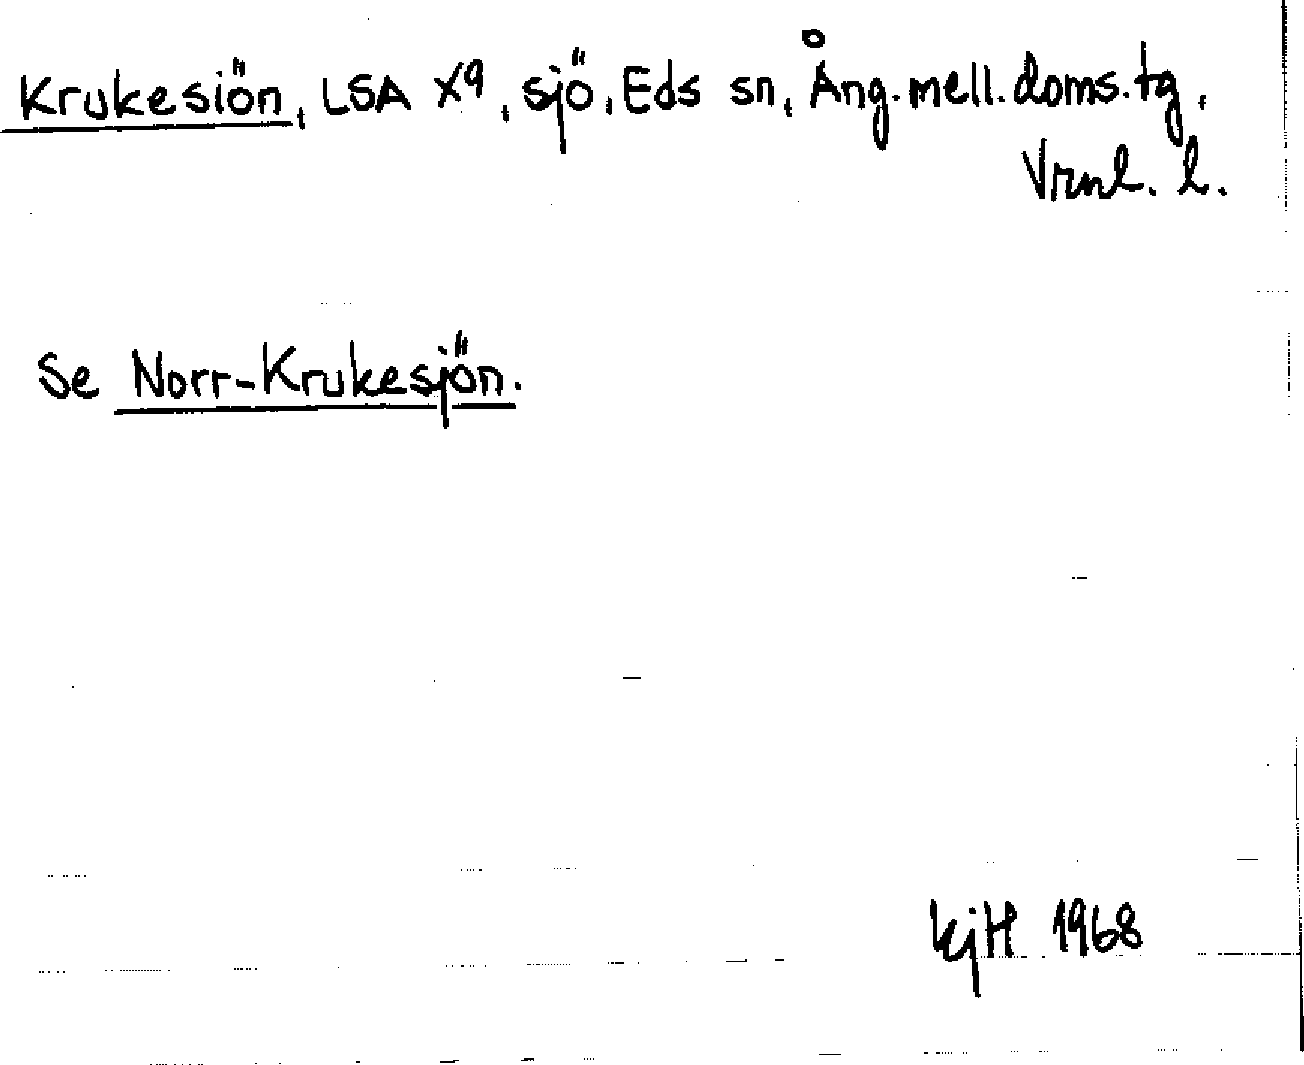 Krukesiön, LSA X9, sjö, Eds sn, Ång. mell. doms. tg,
Vrnl. l.
Se Norr-Krukesjön.
kjH 1968